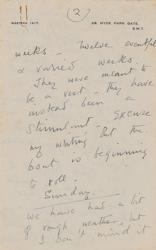 (2)
WESTERN 1417.
28, HYDE PARK GATE,
S.W.7.
weeks – Twelve eventful
& varied weeks.
They were meant to
be a rest – they have
instead been a
stimulant. Excuse
my writing but the
boat is beginning
to roll.
Sunday.
We have had a bit
of rough weather, but
I don't mind it